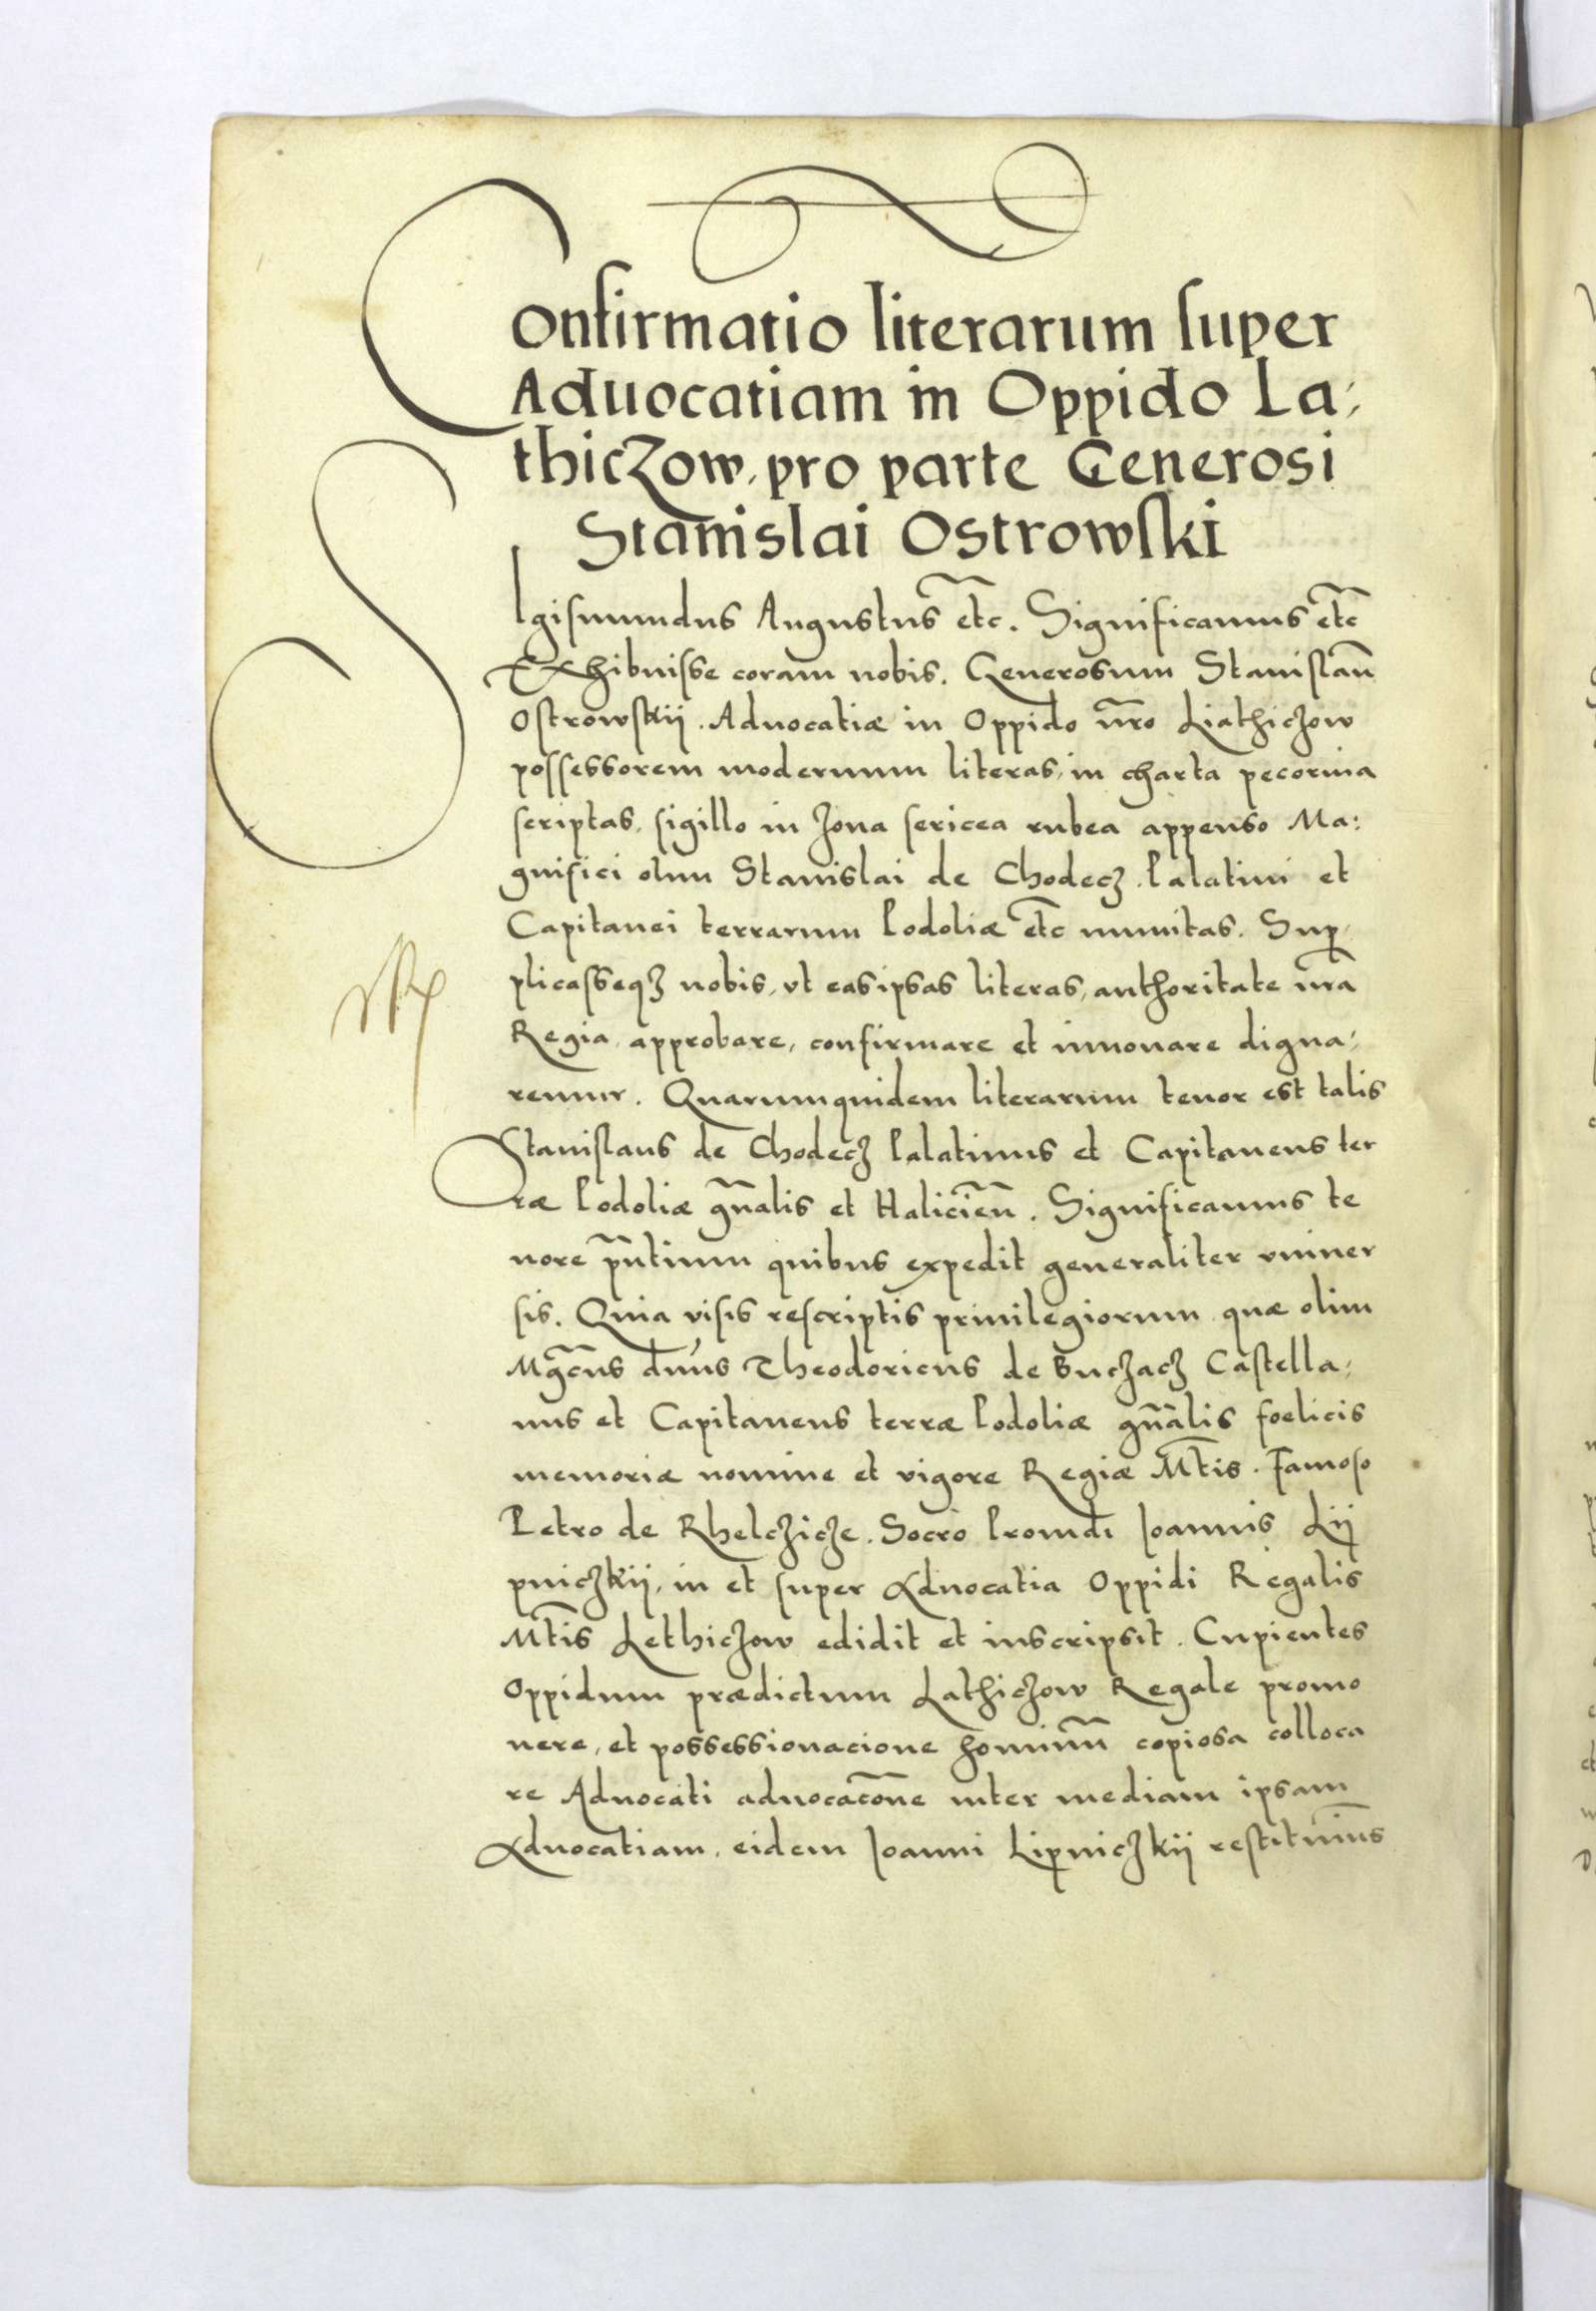 Confirmatio literarum super
Aduocatiam in Oppido La,
thiczow, pro parte Generosi
Stanislai Ostrowski
SIgismundus Augustus etc. Significamus etc
Exhibuisse coram nobis. Generosum Stanislaū
Ostrowskij. Aduocatiæ in Oppido nr̃o Liathiczow
possessorem modernum literas, in charta pecorina
scriptas, sigillo in zona sericea rubea appenso Ma:
gnifici olim Stanislai de Chodecz. Palatini et
Capitanei terrarum Podoliæ etc munitas. Sup,
plicasseqz nobis, vt eas ipsas literas, authoritate nr̃a
Regia, approbare, confirmare et innouare digna,
remur. Quarumquidem literarum tenor est talis
Stanislaus de Chodecz Palatinus et Capitaneus ter
ræ Podoliæ gñalis et Halicien̄. Significamus te
nore pñtium quibus expedit generaliter vniuer
sis. Quia visis rescriptis priuilegiorum quæ olim
Mgc̃us dñus Theodoricus de Buczacz Castella,
nus et Capitaneus terræ Podoliæ gñalis foelicis
memoriæ nomine et vigore Regiæ Mt̃is. Famoso
Petro de Rhelczicze. Socro Prouidi Ioannis Lij
pniczkij, in et super Aduocatia Oppidi Regalis
Mt̃is Lethiczow edidit et inscripsit. Cupientes
Oppidum prædictum Lathiczow Regale promo
uere, et possessionacione hominum̄ copiosa colloca
re Aduocati aduocac̃one inter mediam ipsam
Aduocatiam, eidem Ioanni Lipniczkij restituimus